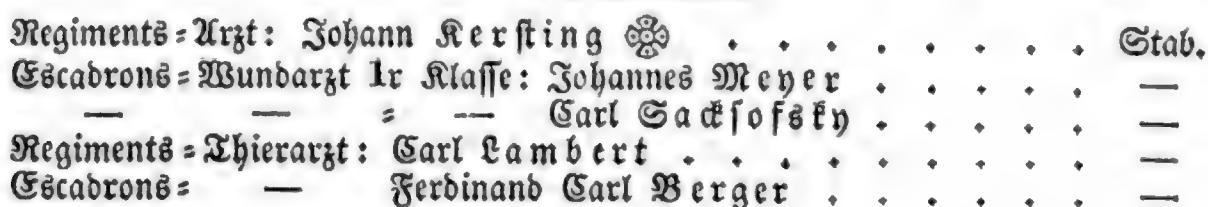 Regiments=Arzt: Johann Kersting . . . . . . . . Stab.
Escadrons=Wundarzt 1r Klasse: Johannes Meyer . . . . . —
— — = — Carl Sacksofsky . . . . . —
Regiments=Thierarzt: Carl Lambert . . . . . . . . —
Escadrons= — Ferdinand Carl Berger . . . . . . —